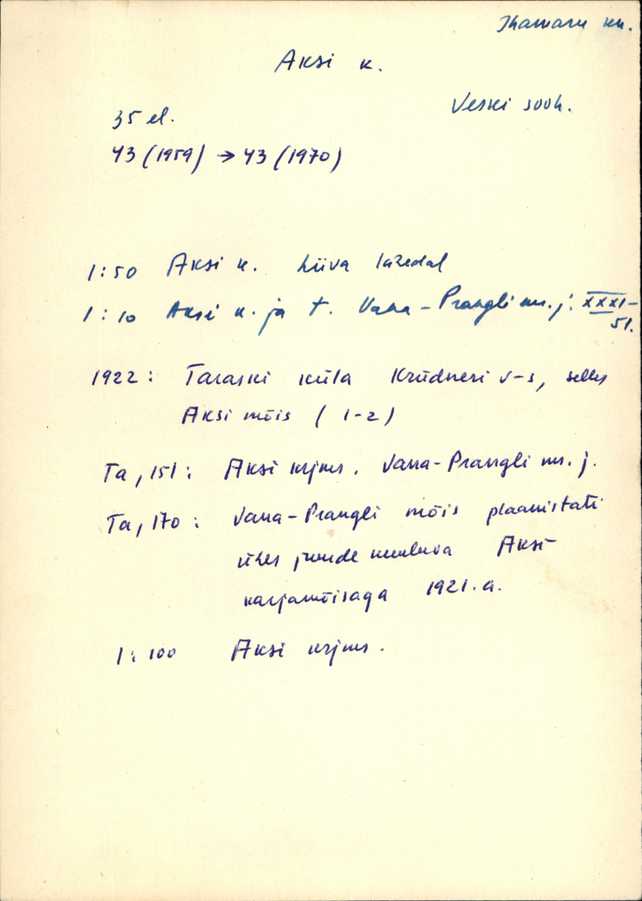 Ihamaru kn.
Aksi k.
Veski sovh.
35 el.
43 (1959) → 43 (1970)
1:50 Aksi k. Liiva lähedal
1:10 Aksi k. ja t. Vana-Prangli ms. j. XXXI-
51.
1922: Taraski küla Krüdneri v-s, selles
Aksi mõis (1-2)
Ta, 151: Aksi krjms. Vana-Prangli ms. j.
Ta, 170: Vana-Prangli mõis plaanistati
ühes juurde kuuluva Aksi
karjamõisaga 1921. a.
1:100 Aksi krjms.